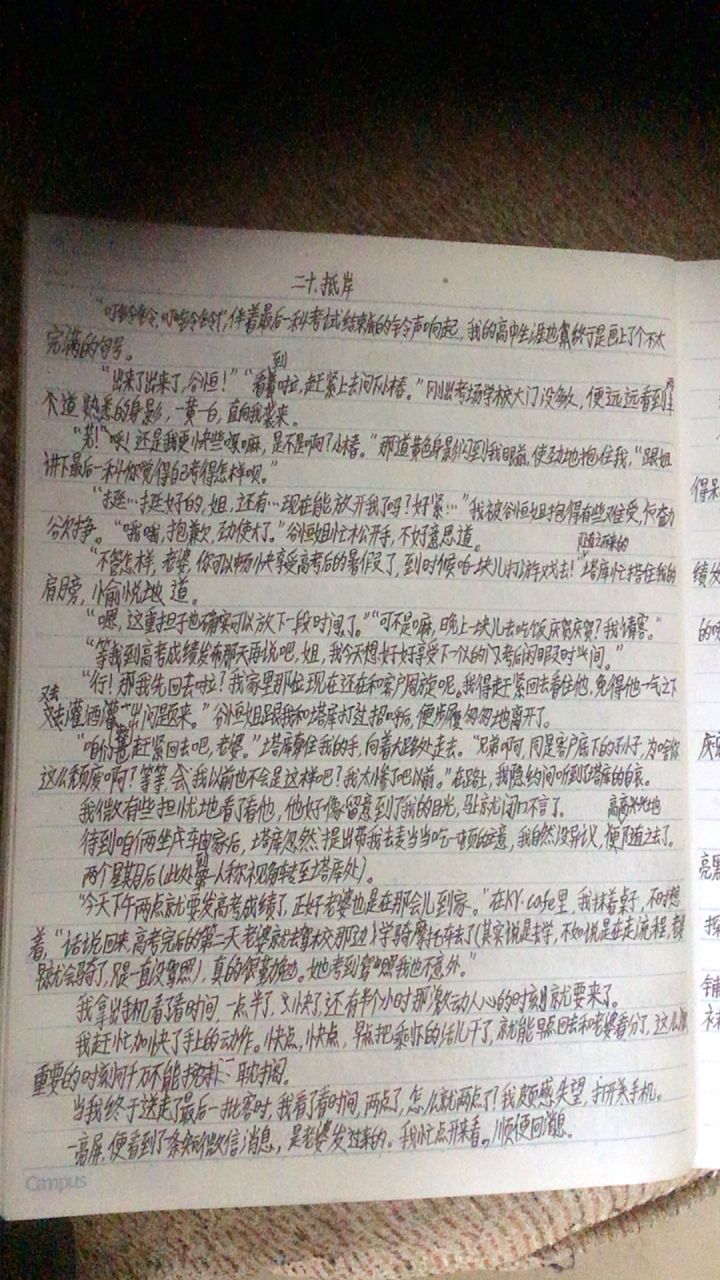 二十.抵岸
“叮铃铃铃，叮铃铃铃”，伴着最后一科考试结束的铃声响起，我的高中生涯也终于是画上了个不太
完满的句号。
“出来了出来了，谷恒！”“看到啦，赶紧上去问下小椿。”刚出考场学校大门没多久，便远远看到两
个道熟悉的身影，一黄一白，直向我袭来。
“若！呼！还是我更快些嘛，是不是啊？小椿。”那道黄色身影闪到我眼前，使劲地抱住我，“跟姐
讲下最后一科你觉得自己考得怎样呗。”
“挺…挺好的，姐，还有…现在能放开我了吗？好紧…”我被谷恒姐抱得有些难受，
“哦哦，抱歉欠，劲使大了。”谷恒姐忙松开手，不好意思道。
“不管怎样，老婆，你可以畅快享受高考后的暑假了，到时候咱一块儿打游戏去！”随之而来的塔库忙搭住我的
肩膀，愉悦地道。
“嗯，这重担子也确实可以放下一段时间了。”“可不是嘛，晚上一块儿去吃饭庆贺庆贺？我请客。”
“等我到高考成绩发布那天再说吧，姐，我今天想好好享受下一次的考后闲暇时间。”
“行！那我先回去啦？我家里那位现在还在和客户周旋呢。我得赶紧回去看住他，免得他一气之下
又去灌酒出问题来。”谷恒姐跟我和塔库打过招呼后，便步履匆匆地离开了。
“咱们也赶紧回去吧，老婆。”塔库牵住我的手，向着大路处走去。“兄弟啊，同是客户底下的孙子，为啥你
这么颓废啊？等等，会，我以前也不会是这样吧？我太惨了吧以前。”在路上，我隐约间听到了塔库的自哀。
我微有些担忧地看了看他，他好像留意到了我的目光，马上就闭口不言了。
待到咱俩坐车回家后，塔库忽然提出带我去麦当当吃一顿的主意，我自然没异议，便高高兴兴地随之去了。
两个星期后（此处第一人称视角转至塔库处）。
“今天下午两点就要发高考成绩了，正好老婆也是在那会儿到家。”在KY.cafe里，我抹着桌子，不时想
着，“话说回来，高考完后的第二天老婆就去驾校那边学骑摩托车去了（其实说是去学，不如说是在走流程，老婆
早就会骑了，只是一直没驾照），真的很勤劳。她考到驾照我也不意外。”
我拿出手机看了看时间，一点半了，又快了，还有半个小时那激动人心的时刻就要来了。
我赶忙加快了手上的动作。快点，快点，早点把剩下的活儿干了，就能早点回去和老婆看分了，这么
重要的时刻可千万不能耽搁。
当我终于送走了最后一批客时，我看了看时间，两点了，怎么就两点了？我颇感失望，打开关手机。
一亮屏，便看到了条微信消息，是老婆发过来的。我忙点开来看。顺便回消息。
Campus